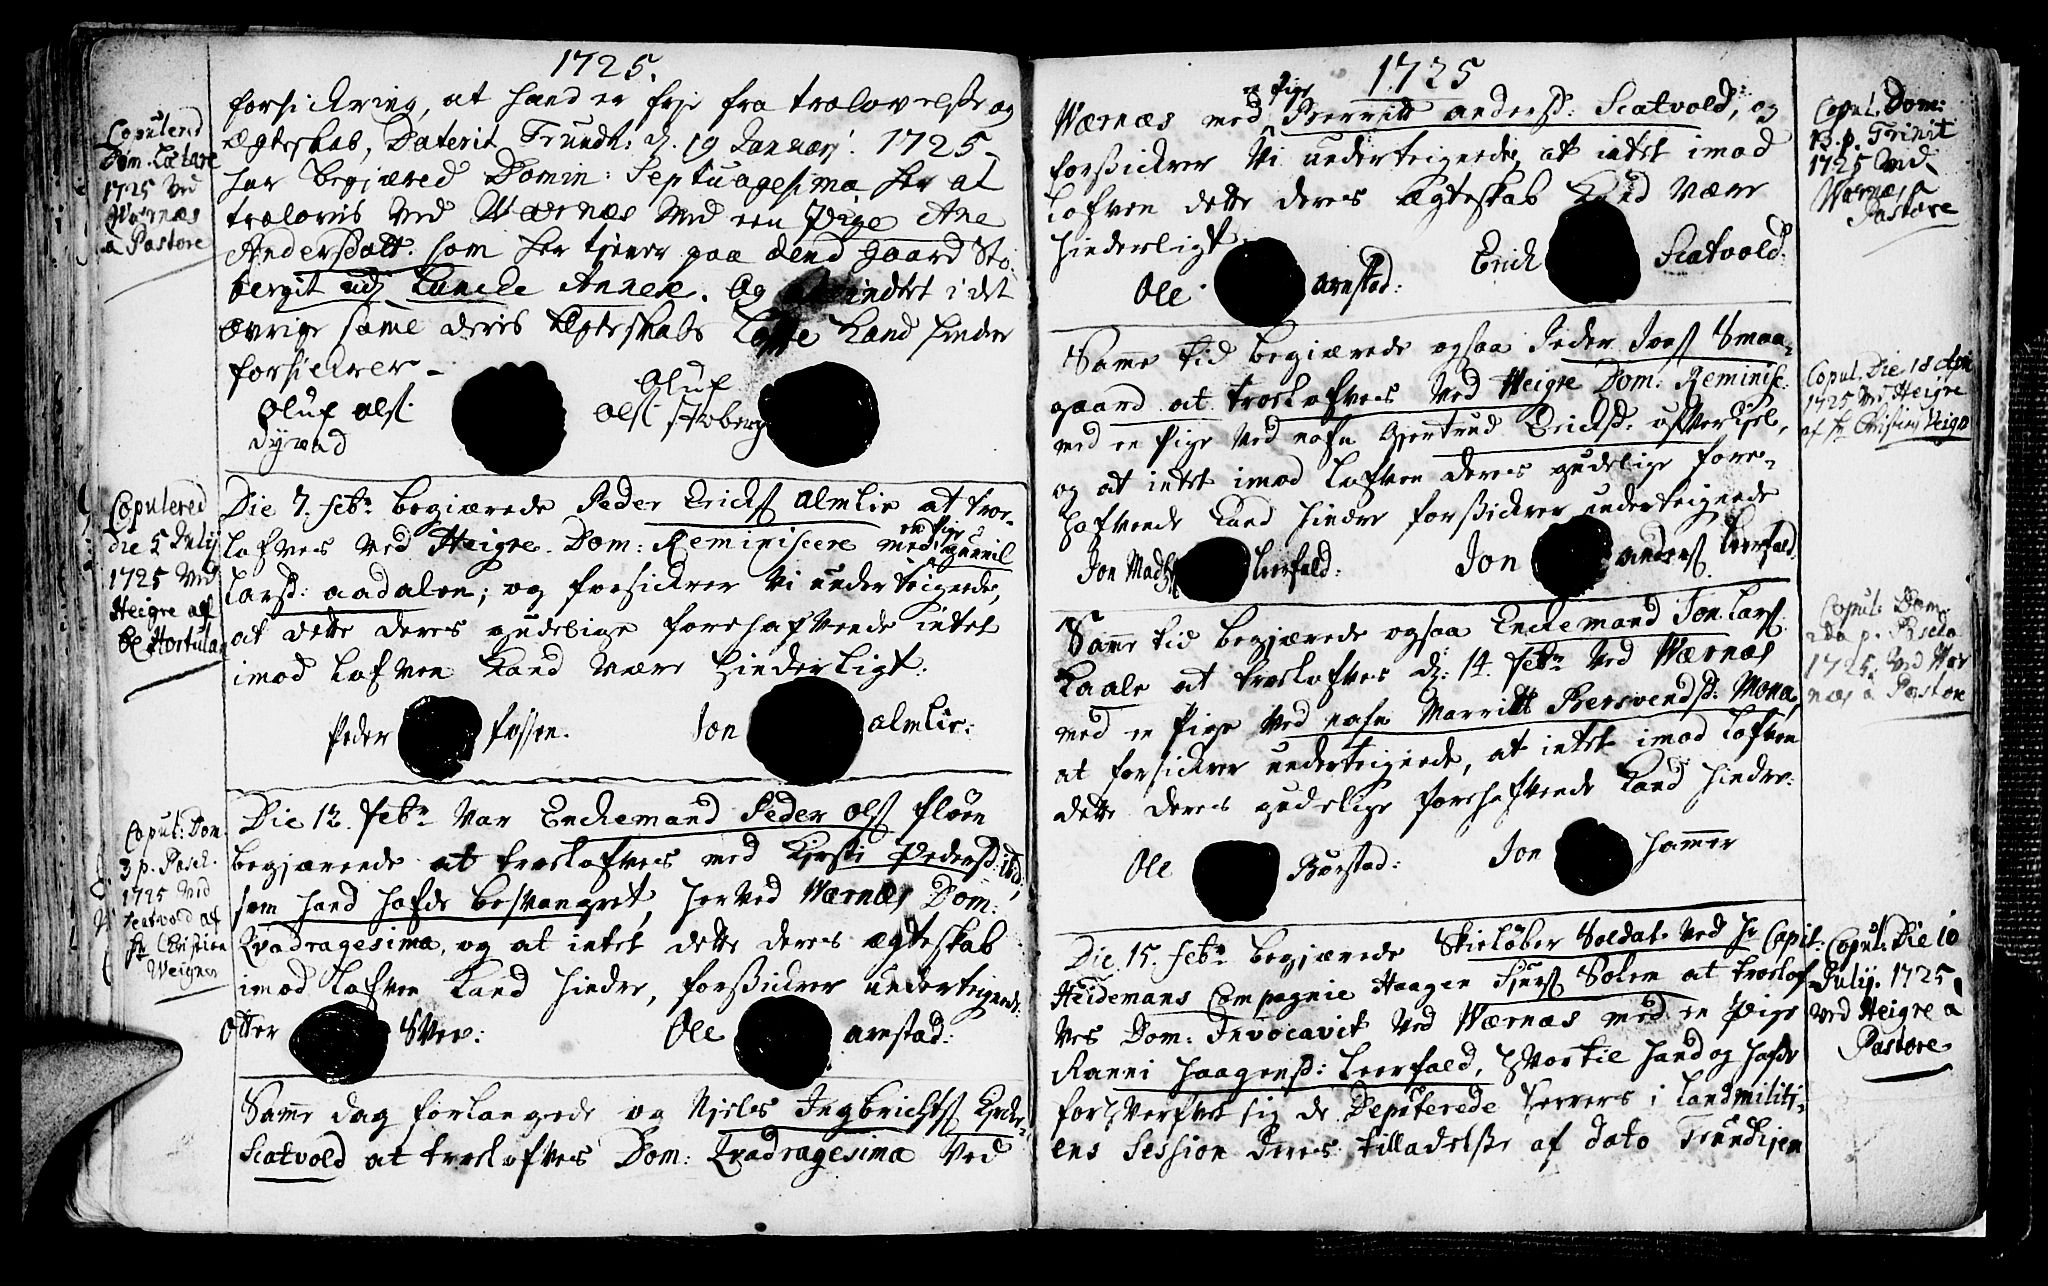 1725.
Copulerid
Dom. Lætare
1725 ved
Wærnæs
a Pastore
forsickring, at hand er frje fra trolovelsse og
Ægteskab, Daterit Trundh: d. 19 Januarj. 1725
har begjæred Domin: Septuagesima her at
trolovis ved Wærnæs med een Pige Ane
Andersdatt. som her tjener paa dend gaard Sto-
bergit udj Lancke Annex. Og indtet i det
øvrige same deris Ægteskabs Løffte kand hinder
forsickrer
Oluf olss.
dyvad
Oluf
olss. stoberg
Copulered
die 5 Julij
1725 ved
Heigre af
Hr Hortulan
Die 7. febr. begiærede Peder Ericks. Almlie at troe-
lofves ved Heigre Dom: Reminiscere med en Pige Gunnil
Larsd: aadalen; og forsickrer Vi underteignede,
at dette deres gudelige forehafvende intet
imod Lofven kand være hinderligt.
Peder fossen.
Jon almlie.
Copul: Dom.
3 p. Pasch.
1725 ved
Scatvold af
Hr Christian
Weigner
Die 12. febr. var Enckemand Peder Ols. floen
begjærende at troelofves med Kirsti Pedersd: ibid;
som hand hafde besvangret, her ved Wærnæs Dom:
Qvadragesima, og at intet dette deres ægteskab
imod Lofven kand hindre, forsickrer underteignede:
Otter Svee:
Ole arnstad:
Samme dag forlangede og Njels Ingbrichts. Kircke-
Scatvold at troelofves Dom: Qvadragesima ved
1725
Wærnæs med en Pige Berritt andersd: Scatvold, og
forsickrer Vi underteignede, at intet imod
Lofven dette deres ægteskab kand være
hinderligt.
Ole arnstad:
Erick Scatvold.
Copul. Dom:
13. p. Trinit
1725 ved
Wærnæs a
Pastore
Samme tid begiærede ogsaa Peder Joens. Smaa-
gaard at troelofves ved Heigre Dom: Reminisc:
med en Pige ved nafn Gjertrud Ericksd: ufverkiel,
og at intet imod Lofven deres gudelige fore-
hafvende kand hindre forsickrer underteignede
Jon Madtz. Leerfald:
Jon anders. Leerfald.
Copul. Die 18 Apr
1725 ved Heigre
af Hr Christian Weign
Samme tid begjærede ogsaa Enckemand Jon Lars.
Kaale at troelofves d: 14. febr. ved Wærnæs
med en Pige ved nafn Marritt Bersvendsd: Mona,
at forsickrer underteignede, at intet imod Lofven
dette deres gudelige forehafvende kand hindre:
Ole Borstad:
Jon hammer
Copul: Dom.
2da p. Pascha
1725. ved Wær
næs a Pastore
Die 15. febr. begjærede Skieløber Soldat ved Hr Capit:
Heidemans Compagnie Haagen Siurs. Solem at troelof-
ves Dom: Invocavit ved Wærnæs med en Pige
Ranni Haagensd: Leerfald, hvortil hand og hafde
forhverfvet sig de Deputerede herrers i Landmiliti-
ens Session deres tilladelsse af dato Trundhjem
Copul: Die 10
Julij. 1725,
ved Heigre a
Pastore